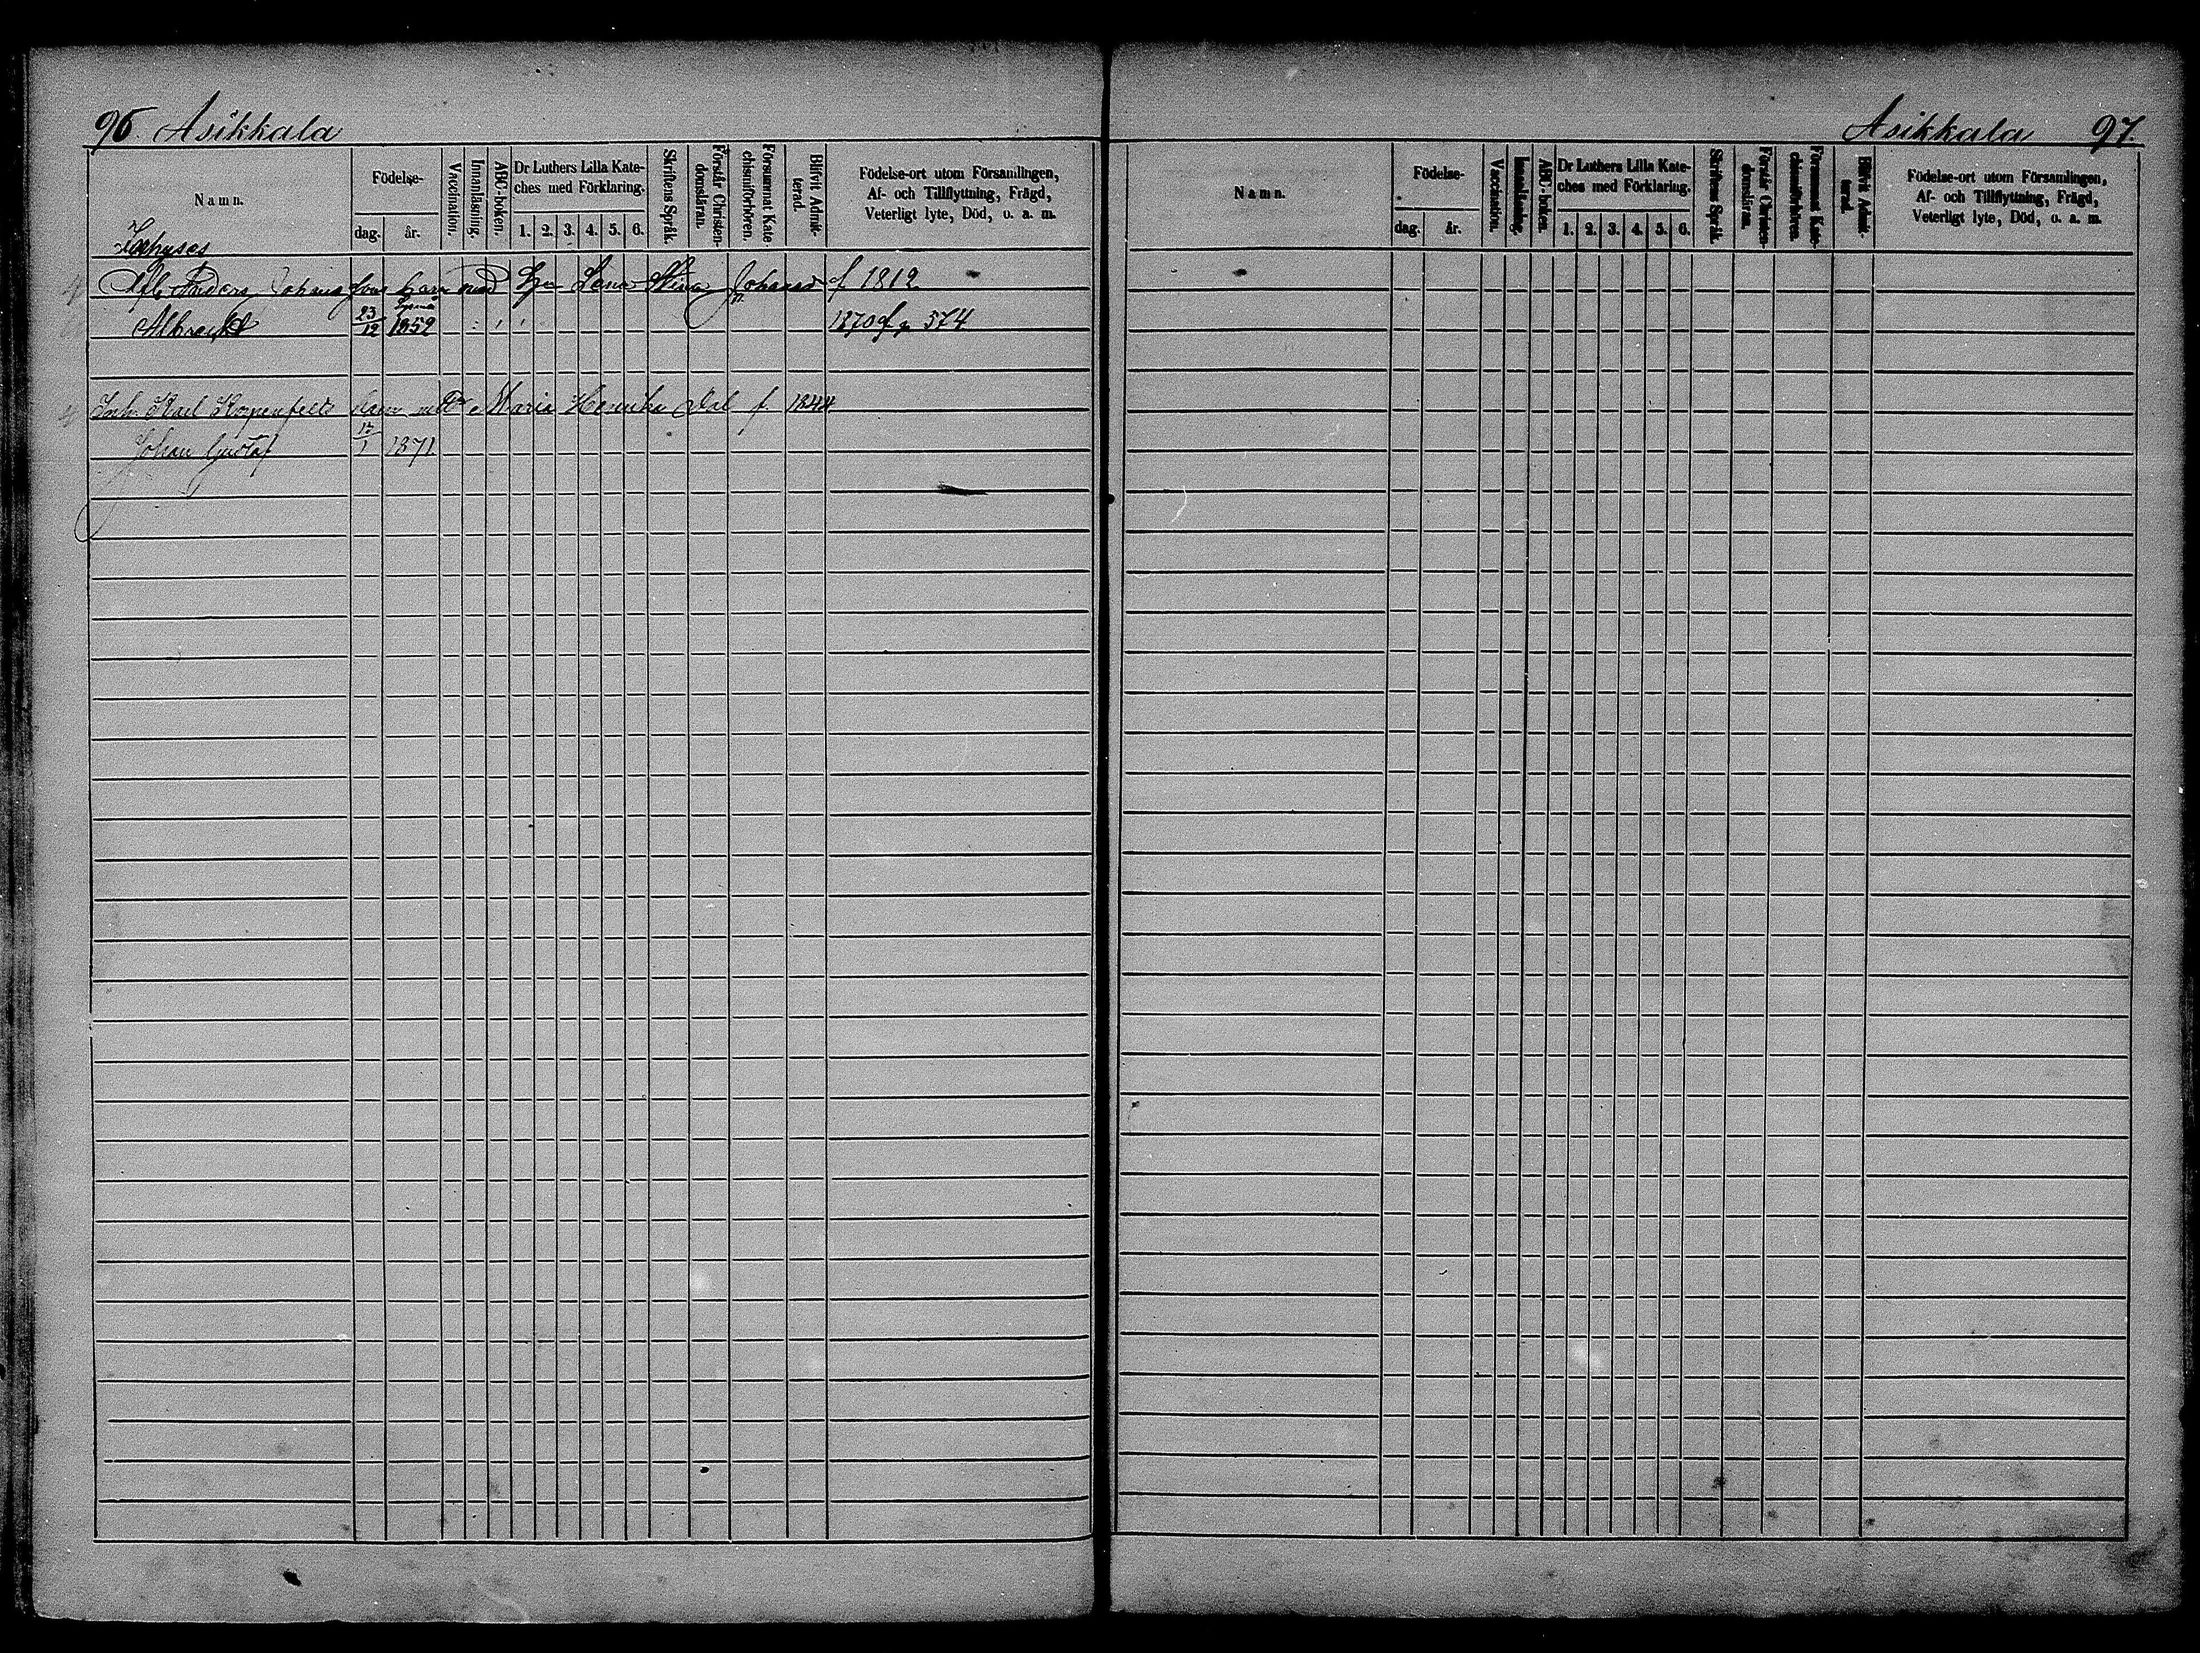 96 Asikkala
Namn.
Födelse-
dag.
år.
Vaccination.
Innanläsning.
ABC-boken.
Dr Luthers Lilla Kate-
ches med Förklaring.
1. 2. 3. 4. 5. 6.
Skriftens Språk.
Förstår Christen-
domsläran.
Försummat Kate
chismiförhören.
Blifvit Admit-
terad.
Födelse-ort utom Församlingen,
Af- och Tillflyttning, Frägd,
Veterligt lyte, Död, o. a. m.
Anders Johans Sons barn med Lena Stina Johansd f 1812
Albrecht 23/12 1852 1870 574
Inh. Karl Koppenfelts barn med Maria Henrika Dal f. 1844
Johan Gustaf 17/1 1871.
Asikkala 97.
Namn.
Födelse-
dag.
år.
Vaccination.
Innanläsning.
ABC-boken.
Dr Luthers Lilla Kate-
ches med Förklaring.
1. 2. 3. 4. 5. 6.
Skriftens Språk.
Förstår Christen-
domsläran.
Försummat Kate-
chismiförhören.
Blifvit Admit-
terad.
Födelse-ort utom Församlingen,
Af- och Tillflyttning, Frägd,
Veterligt lyte, Död, o. a. m.